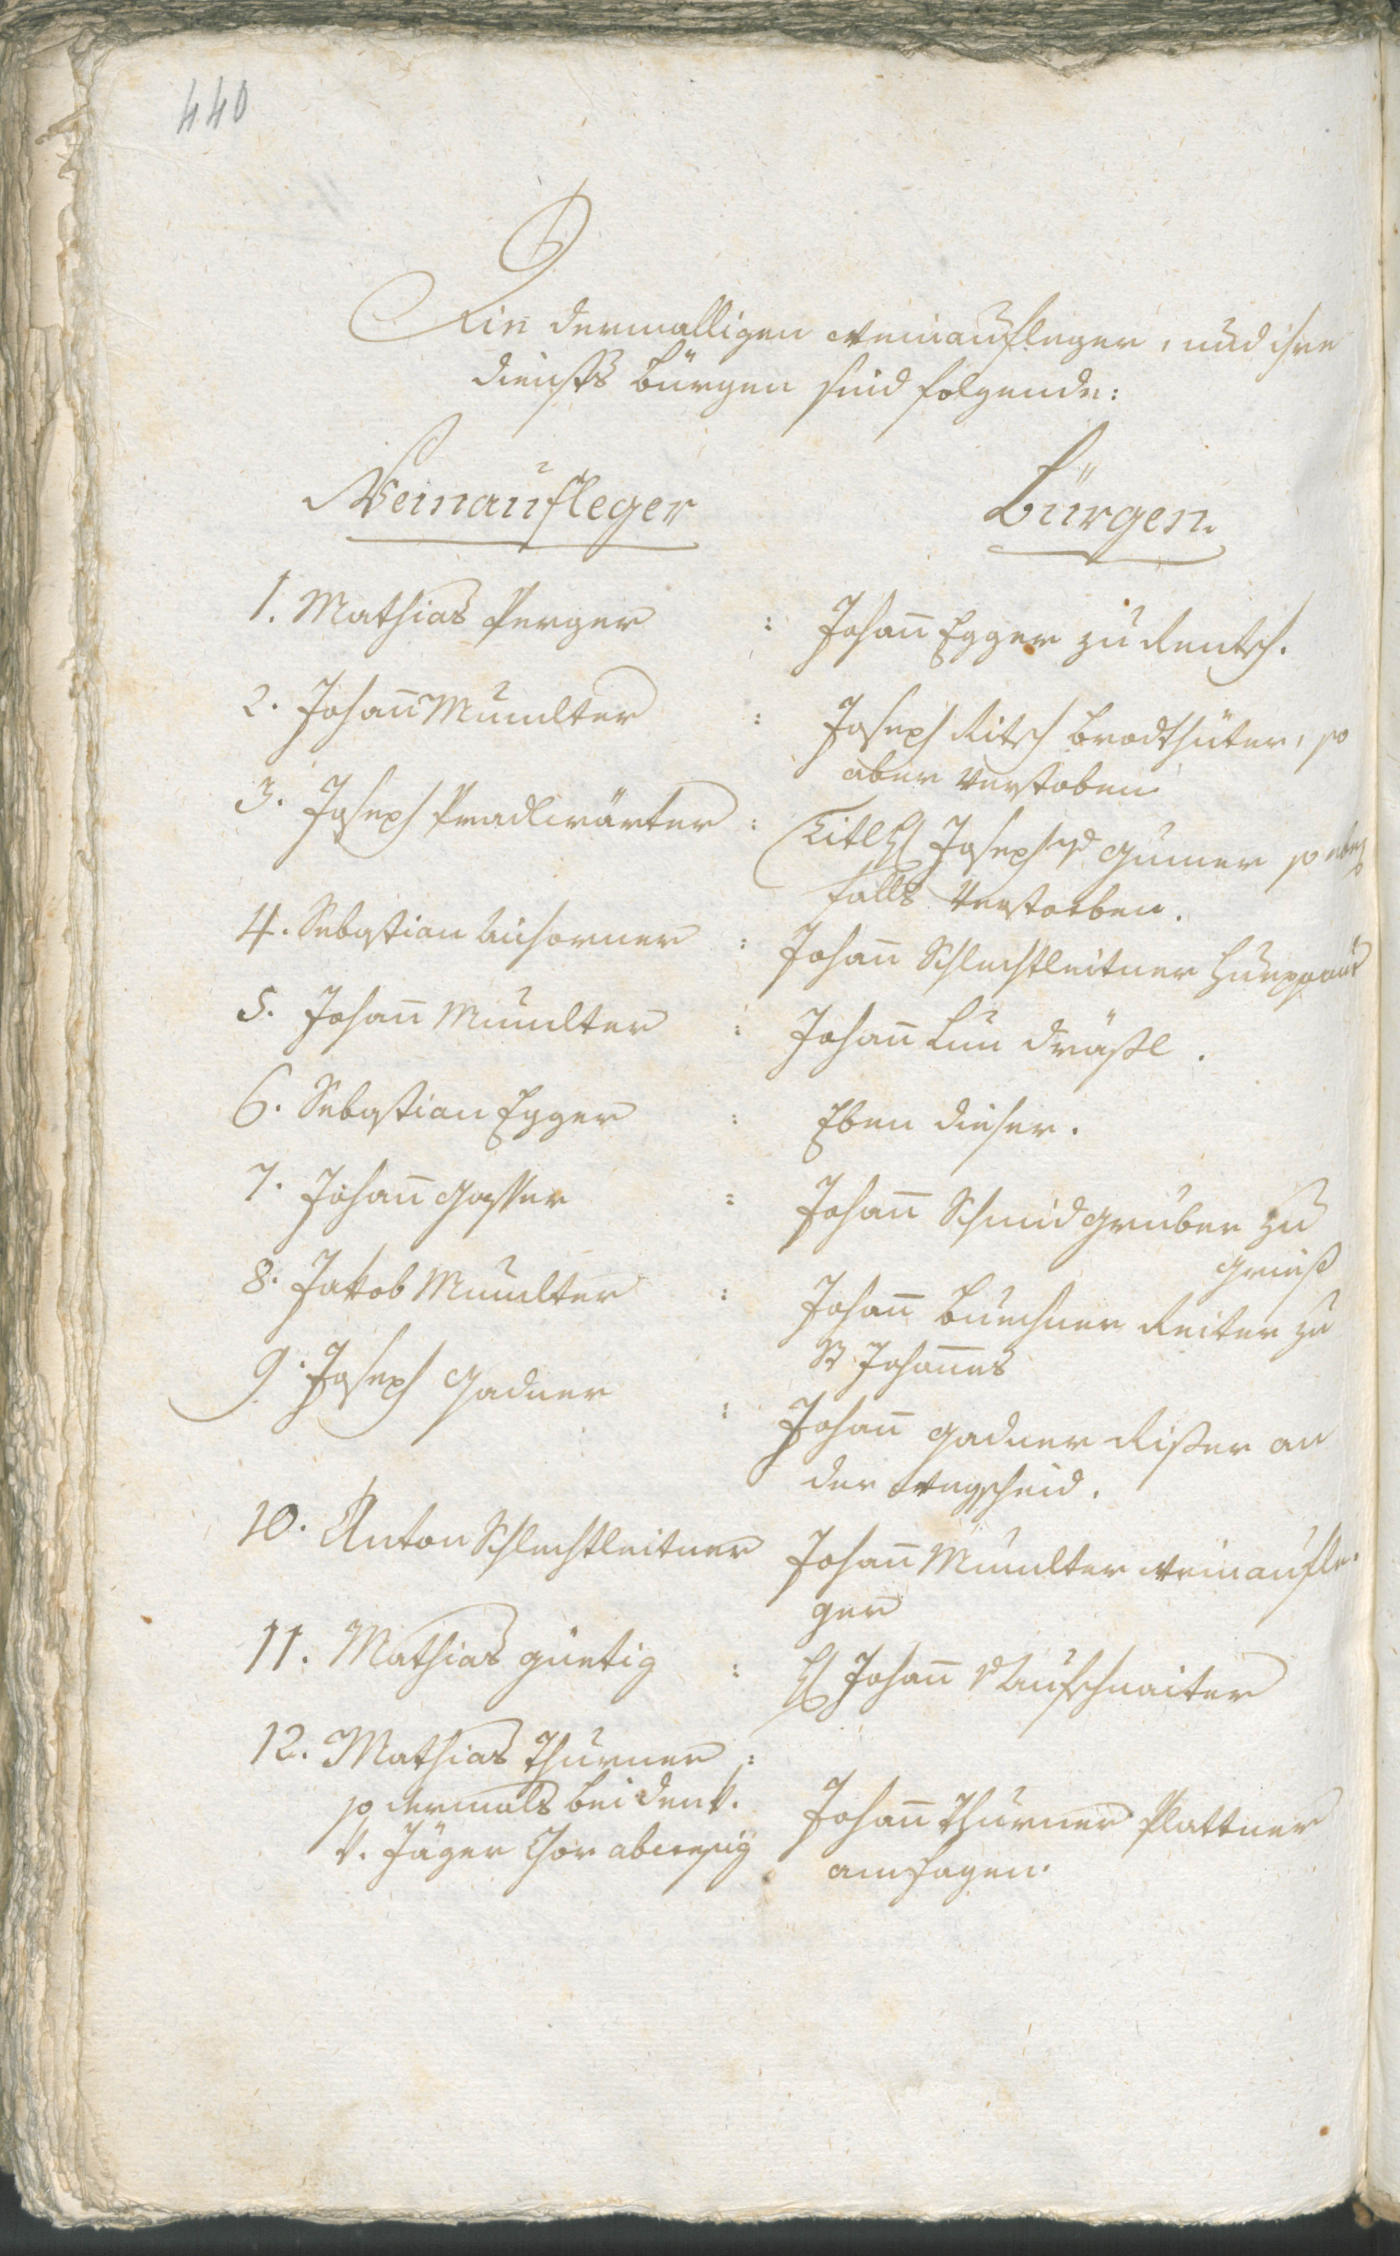 440
Die dermalligen Weinaufleger, und ihre
diensts Bürgen sind folgende:
Weinaufleger Bürgen.
1. Mathias Perger : Johann Egger zu Rentsch.
2. Johann Mumlter : Joseph Ritsch Brodhüter, so
aber verstoben
3. Joseph Pradlwarter : Titl H Joseph v Gumer so eben
falls verstorben.
4. Sebastian Aichorner : Johann Schlechtleitner
5. Johann Mumlter : Johann Lun dräßl.
6. Sebastian Egger : Eben dieser.
7. Johann Gasser : Johann Schmid Gruber zu
Grieß
8. Jakob Mumlter : Johann Buechner Reiter zu
St Johannes
9. Joseph Gadner : Johann Gadner Rißer an
der Wegscheid.
10. Anton Schlechtleitner Johann Mumlter Weinaufle-
ger
11. Mathias güetig : H Johann v Aufschnaiter
12. Mathias Thurner :
so dermals bei den k.
k. Jäger Chor abwesig Johann Thurner Plattner
am hagen.